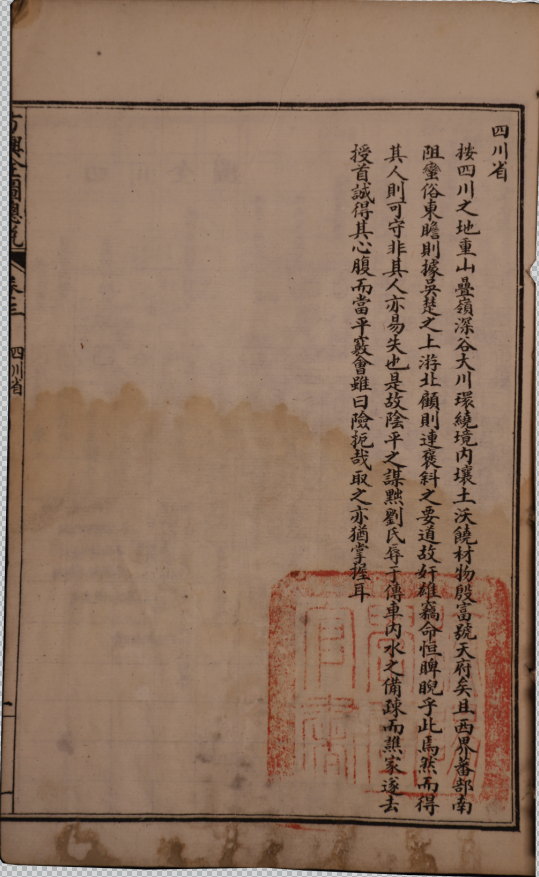 四川省
按四川之地重山疊嶺深谷大川環繞境內壤土沃饒材物殷富號天府矣且西界蕃部南
阻蠻俗東瞻則據吳楚之上游北顧則連褒斜之要道故奸雄竊命恒睥睨乎此焉然而得
其人則可守非其人亦易失也是故陰平之謀黙劉氏辱于傳車內水之備疎而譙家遂去
授首誠得其心腹而當平竅會雖曰險扼哉取之亦猶掌握耳
卷三
四川省